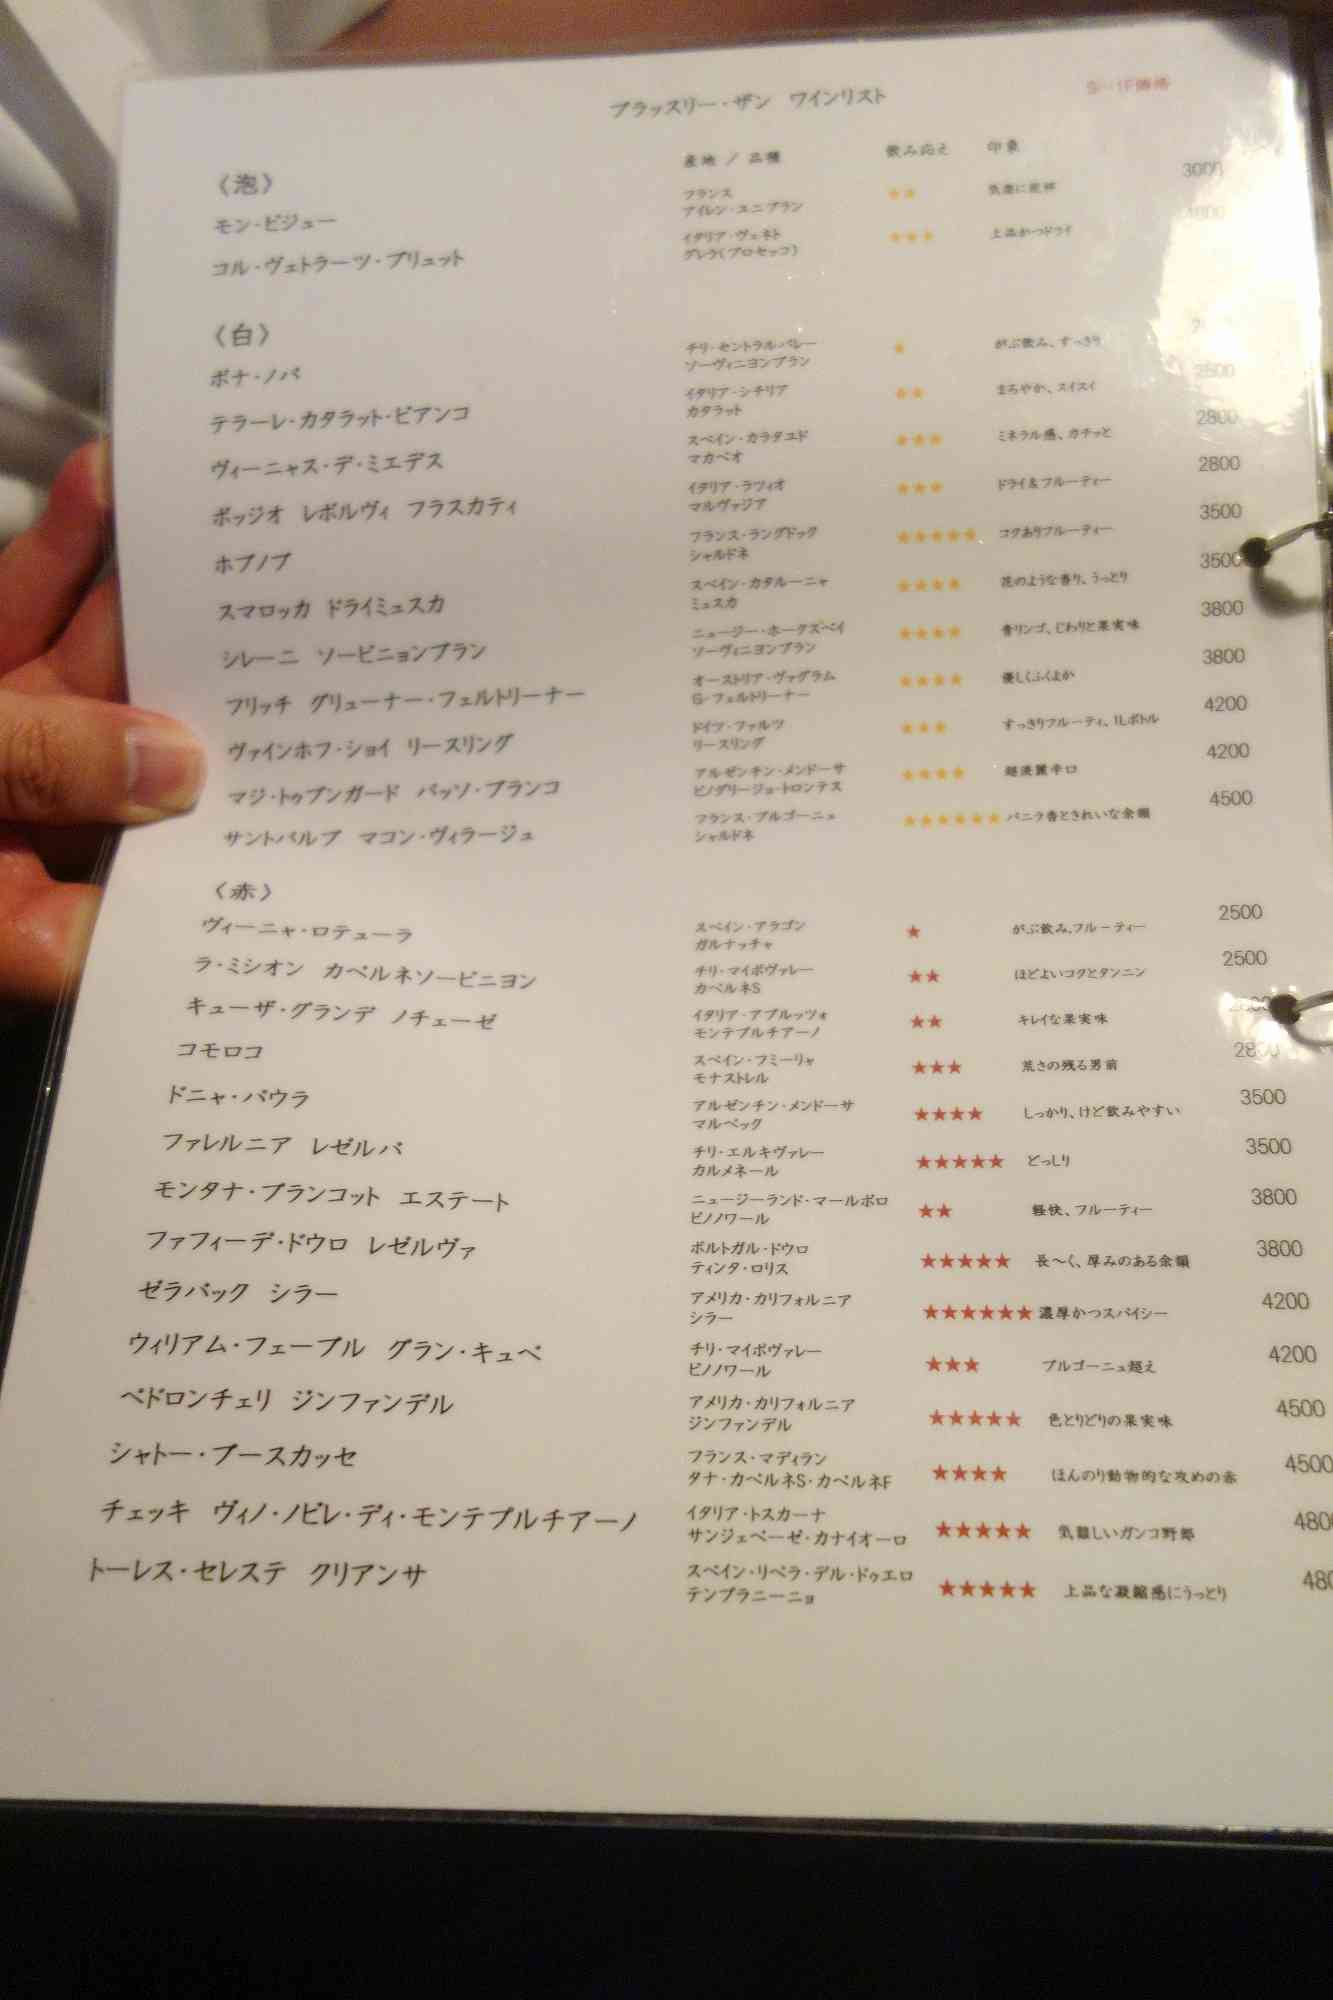 ブラッスリー・ザン ワインリスト
産地 / 品種 飲み応え 印象
〈泡〉
モン・ビジュー フランス アイレン・ユニブラン ★★ 気楽に乾杯 3000
コル・ヴェトラーツ・ブリュット イタリア・ヴェネト グレラ(プロセッコ) ★★★ 上品かつドライ
〈白〉
ボナ・ノバ チリ・セントラルバレー ソーヴィニヨンブラン ★ がぶ飲み、すっきり
テラーレ・カタラット・ビアンコ イタリア・シチリア カタラット ★★ まろやか、スイスイ 2500
ヴィーニャス・デ・ミエデス スペイン・カラタユド マカベオ ★★★ ミネラル感、カチッと 2800
ポッジオ レボルヴィ フラスカティ イタリア・ラツィオ マルヴァジア ★★★ ドライ&フルーティー 2800
ホブノブ フランス・ラングドック シャルドネ ★★★★★ コクありフルーティー 3500
スマロッカ ドライミュスカ スペイン・カタルーニャ ミュスカ ★★★★ 花のような香り、うっとり 3500
シレーニ ソービニョンブラン ニュージー・ホークスベイ ソーヴィニヨンブラン ★★★★ 青リンゴ、じわりと果実味 3800
フリッチ グリューナー・フェルトリーナー オーストリア・ヴァグラム G・フェルトリーナー ★★★★ 優しくふくよか 3800
ヴァインホフ・ショイ リースリング ドイツ・ファルツ リースリング ★★★ すっきりフルーティ、1Lボトル 4200
マジ・トゥプンガード パッソ・ブランコ アルゼンチン・メンドーサ ピノグリージョ・トロンテス ★★★★ 超淡麗辛口 4200
サントバルブ マコン・ヴィラージュ フランス・ブルゴーニュ シャルドネ ★★★★★★ バニラ香ときれいな余韻 4500
〈赤〉
ヴィーニャ・ロテューラ スペイン・アラゴン ガルナッチャ ★ がぶ飲み、フルーティー 2500
ラ・ミシオン カベルネソービニヨン チリ・マイポヴァレー カベルネS ★★ ほどよいコクとタンニン 2500
キューザ・グランデ ノチェーゼ イタリア・アブルッツォ モンテプルチアーノ ★★ キレイな果実味
コモロコ スペイン・フミーリャ モナストレル ★★★ 荒さの残る男前 2800
ドニャ・パウラ アルゼンチン・メンドーサ マルベック ★★★★ しっかり、けど飲みやすい 3500
ファレルニア レゼルバ チリ・エルキヴァレー カルメネール ★★★★★ どっしり 3500
モンタナ・ブランコット エステート ニュージーランド・マールボロ ピノノワール ★★ 軽快、フルーティー 3800
ファフィーデ・ドウロ レゼルヴァ ポルトガル・ドウロ ティンタ・ロリス ★★★★★ 長〜く、厚みのある余韻 3800
ゼラバック シラー アメリカ・カリフォルニア シラー ★★★★★★ 濃厚かつスパイシー 4200
ウィリアム・フェーブル グラン・キュベ チリ・マイポヴァレー ピノノワール ★★★ ブルゴーニュ超え 4200
ペドロンチェリ ジンファンデル アメリカ・カリフォルニア ジンファンデル ★★★★★ 色とりどりの果実味 4500
シャトー・ブースカッセ フランス・マディラン タナ・カベルネS・カベルネF ★★★★ ほんのり動物的な攻めの赤 4500
チェッキ ヴィノ・ノビレ・ディ・モンテプルチアーノ イタリア・トスカーナ サンジェベーゼ・カナイオーロ ★★★★★ 気難しいガンコ野郎 480
トーレス・セレステ クリアンサ スペイン・リベラ・デル・ドゥエロ テンプラニーニョ ★★★★★ 上品な凝縮感にうっとり 480